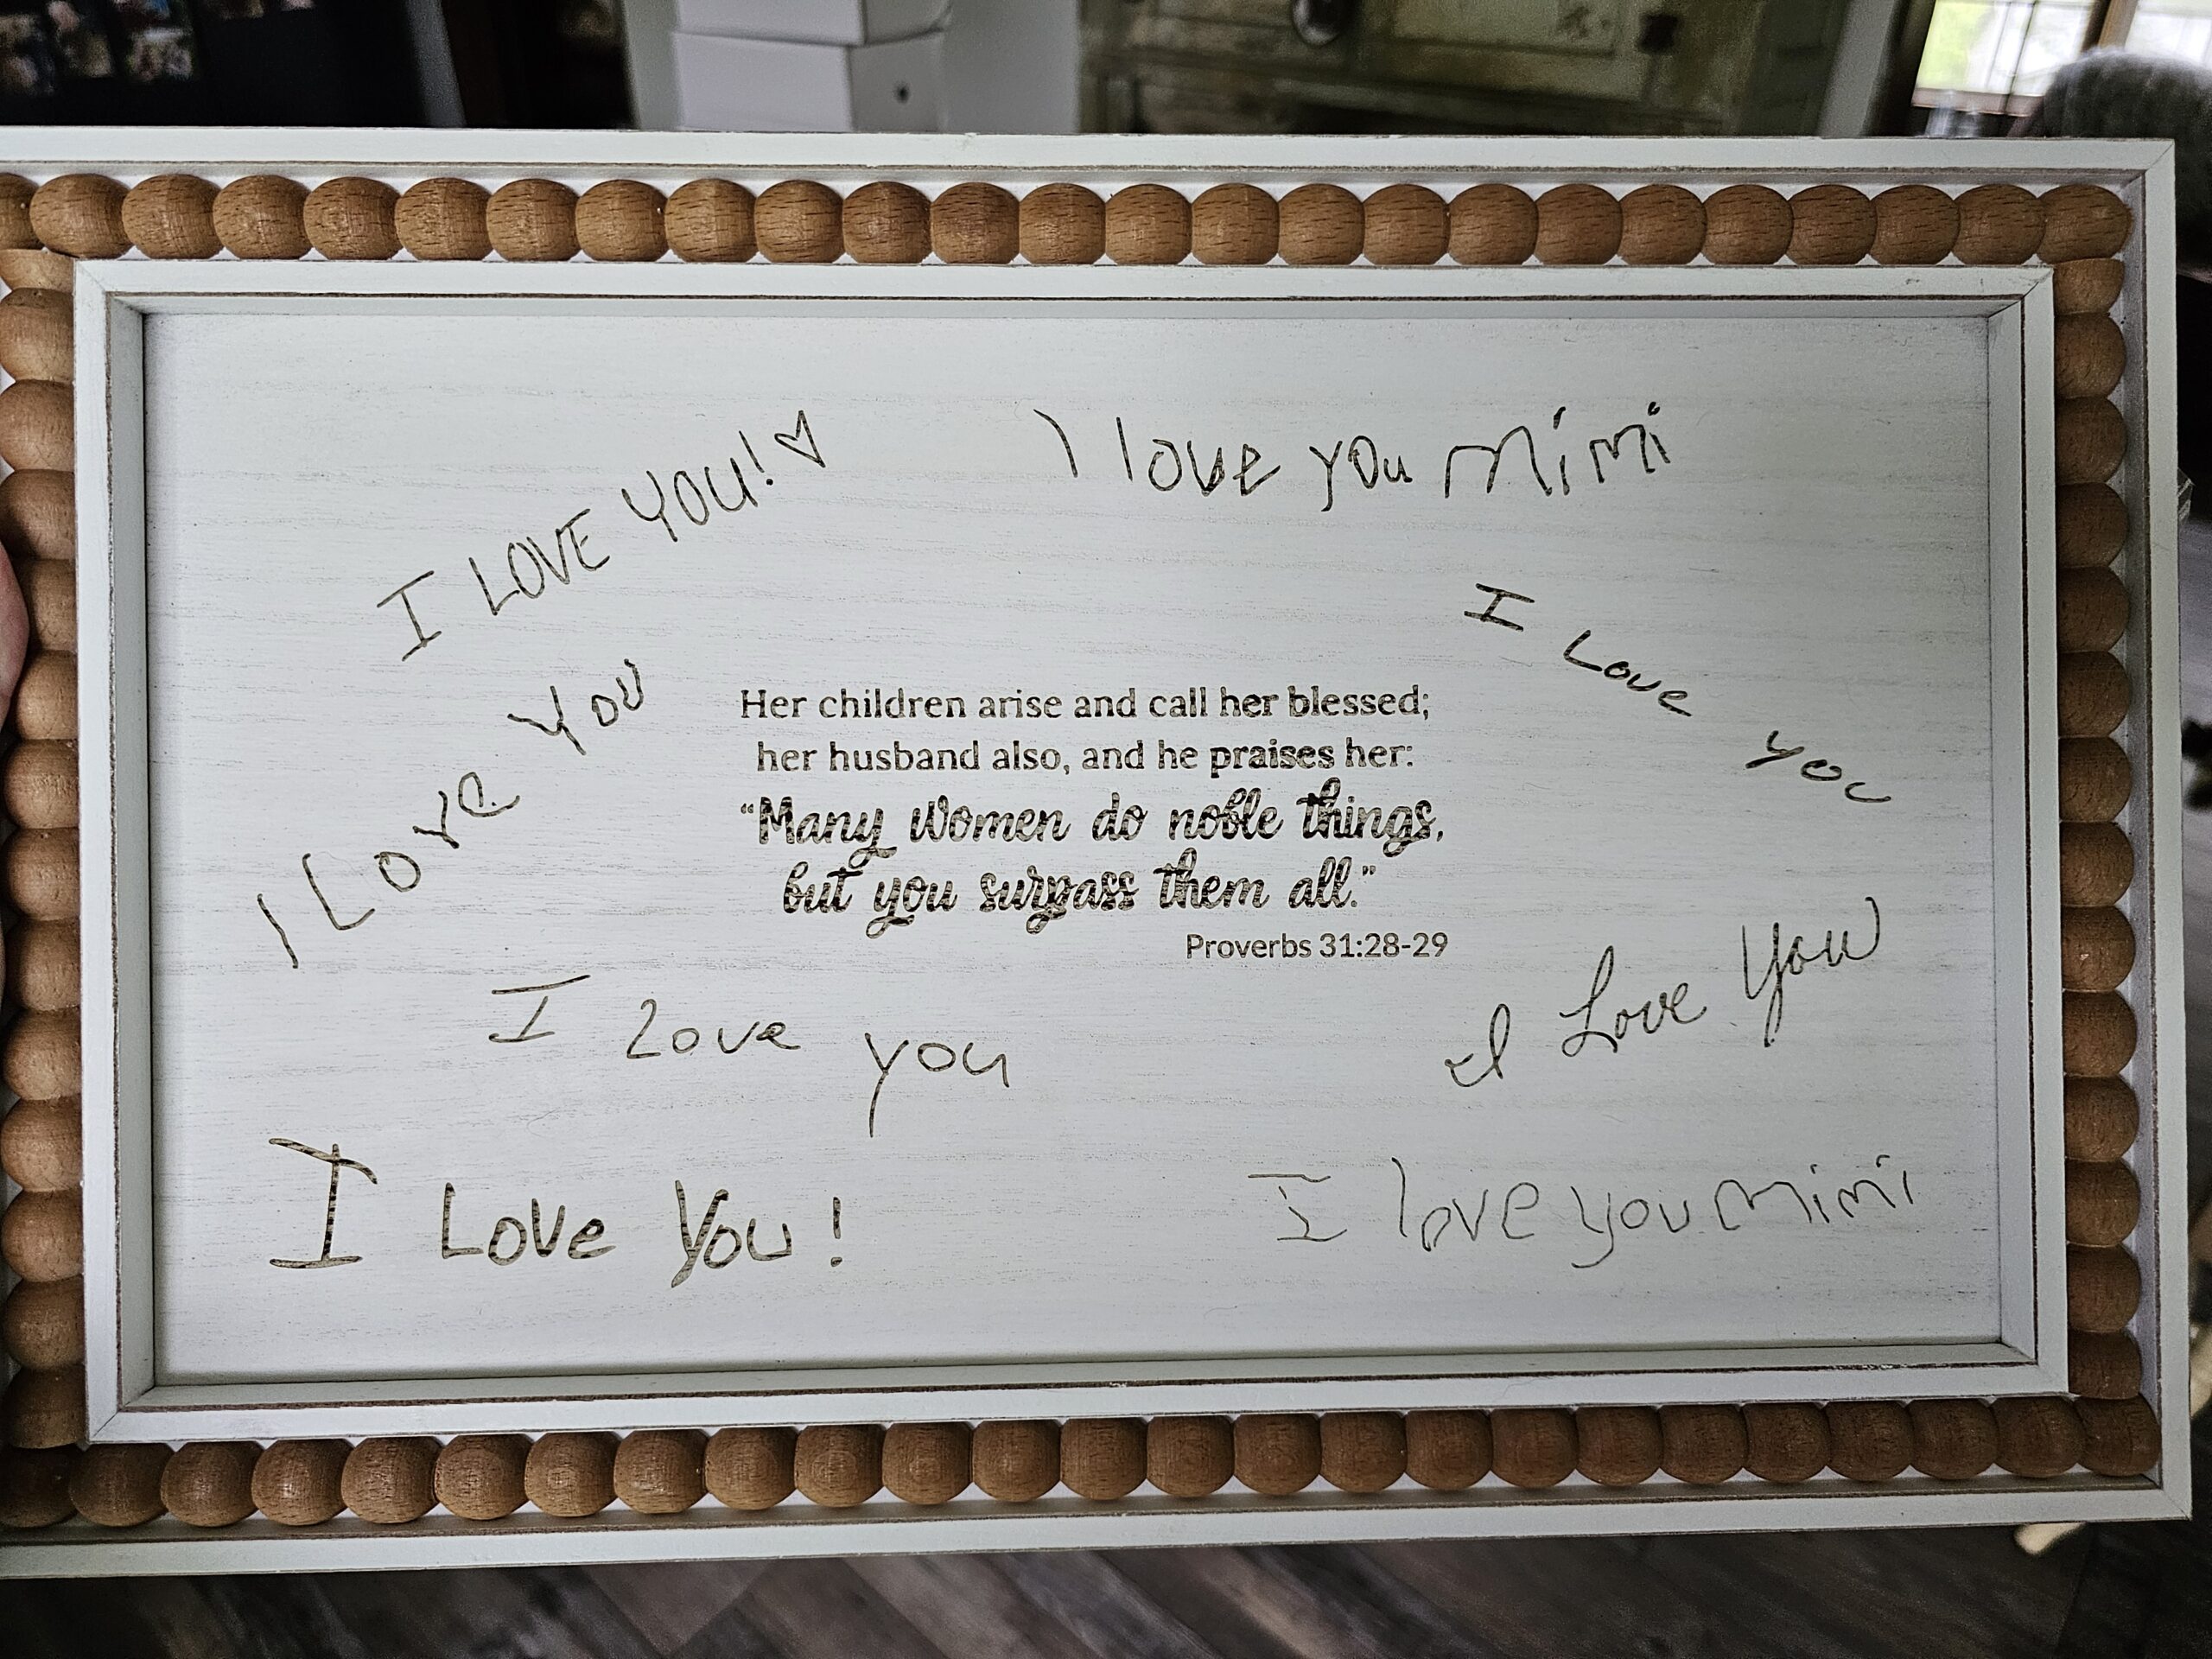 I LOVE YOU! ♡
I love you Mimi
I Love You
I Love you
Her children arise and call her blessed;
her husband also, and he praises her:
“Many women do noble things,
but you surpass them all.”
Proverbs 31:28-29
I love you
I Love You
I Love You!
I love you Mimi